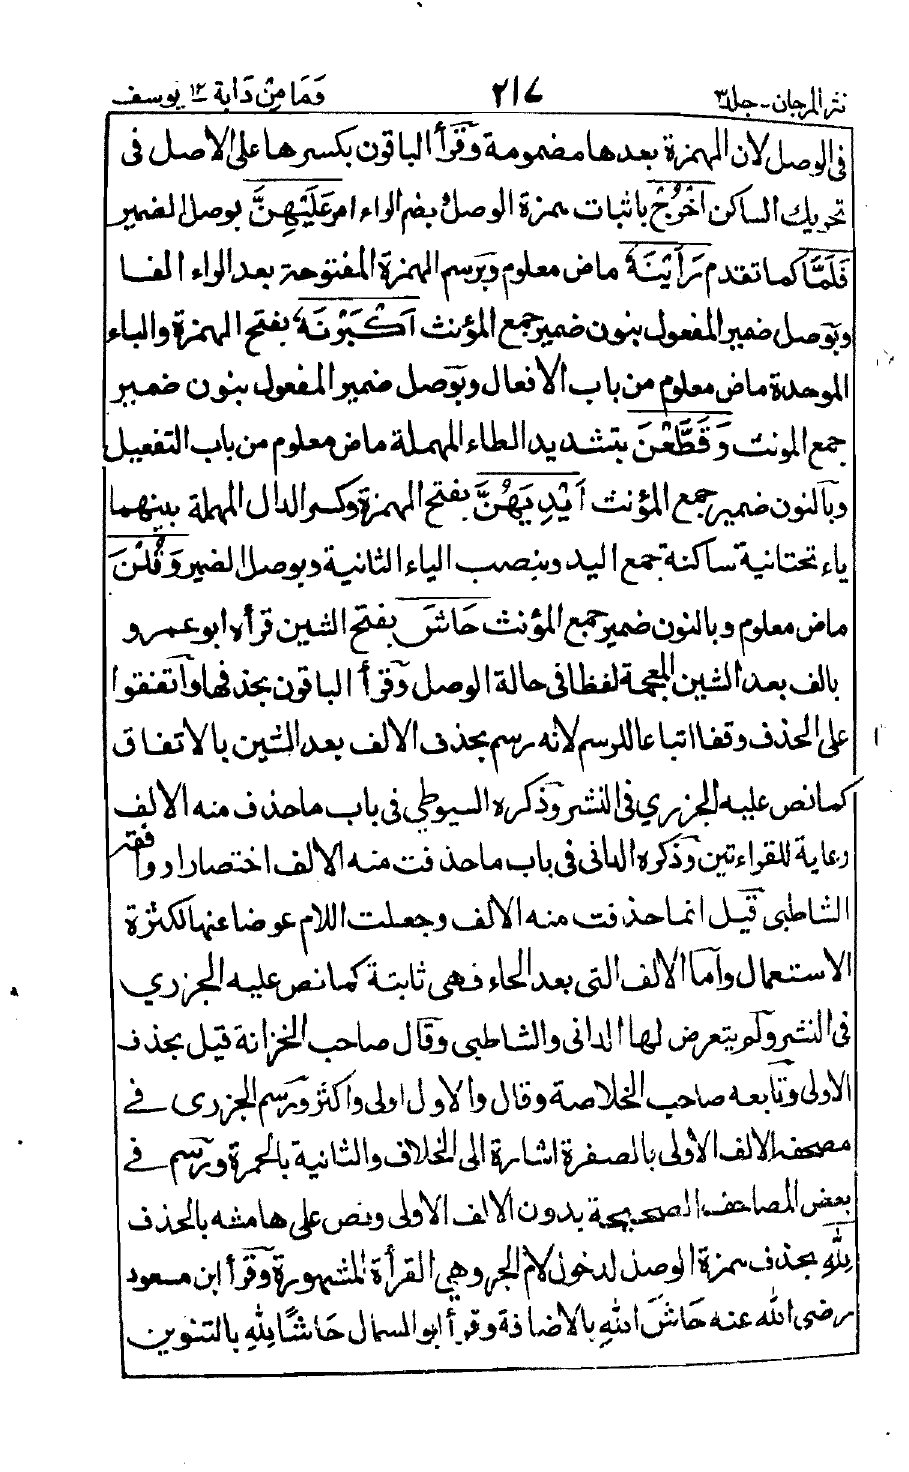 نثر المرجان - جلد ٣ ٢١٧ وَمَا مِنْ دَابة ١٢ يوسف
فى الوصل لان الهمزة بعدها مضمومة وقرأ الباقون بكسرها على الاصل فى
تحريك الساكن اخْرُجْ باثبات همزة الوصل بضم الراء امر عَلَيْهِنَّ بوصل الضمير
فَلَمَّا كما تقدم رَأَيْنَهٗ ماض معلوم وبرسم الهمزة المفتوحة بعد الراء الفا
وبوصل ضمير المفعول بنون ضمير جمع المؤنث اَكْبَرْنَهٗ بفتح الهمزة والباء
الموحدة ماض معلوم من باب الافعال وبوصل ضمير المفعول بنون ضمير
جمع المونث وَقَطَّعْنَ بتشديد الطاء المهملة ماض معلوم من باب التفعيل
وبالنون ضمير جمع المؤنث اَيْدِيَهُنَّ بفتح الهمزة وكسر الدال المهملة بينهما
ياء تحتانية ساكنة جمع اليد وبنصب الياء الثانية وبوصل الضمير وَقُلْنَ
ماض معلوم وبالنون ضمير جمع المؤنث حَاشَ بفتح الشين قرأه ابو عمرو
بالف بعد الشين المعجمة لفظا فى حالة الوصل وقرأ الباقون بحذفها واتفقوا
على الحذف وقفا اتباعا للرسم لانه رسم بحذف الالف بعد الشين بالاتفاق
كما نص عليه الجزري فى النشر وذكره السيوطي فى باب ما حذف منه الالف
رعاية للقراءتين وذكره الدانى فى باب ما حذفت منه الالف اختصارا ووافقه
الشاطبى قيل انما حذفت منه الالف وجعلت اللام عوضا عنها لكثرة
الاستعمال واما الالف التى بعد الحاء فهى ثابتة كما نص عليه الجزري
فى النشر ولم يتعرض لها الدانى والشاطبى وقال صاحب الخزانة قيل بحذف
الاولى وتابعه صاحب الخلاصة وقال والاول اولى واكثر ورسم الجزرى فے
مصحفه الالف الأولى بالصفرة اشارة الى الخلاف والثانية بالحمرة ورسم فے
بعض المصاحف الصحيحة بدون الالف الاولى ونص على هامشه بالحذف
لِلّٰهِ بحذف همزة الوصل لدخول لام الجر وهي القرأة المشهورة وقرأ ابن مسعود
رضى الله عنه حَاشَ اللهِ بالاضافة وقرأ ابو السمال حَاشًا لِلّٰهِ بالتنوين